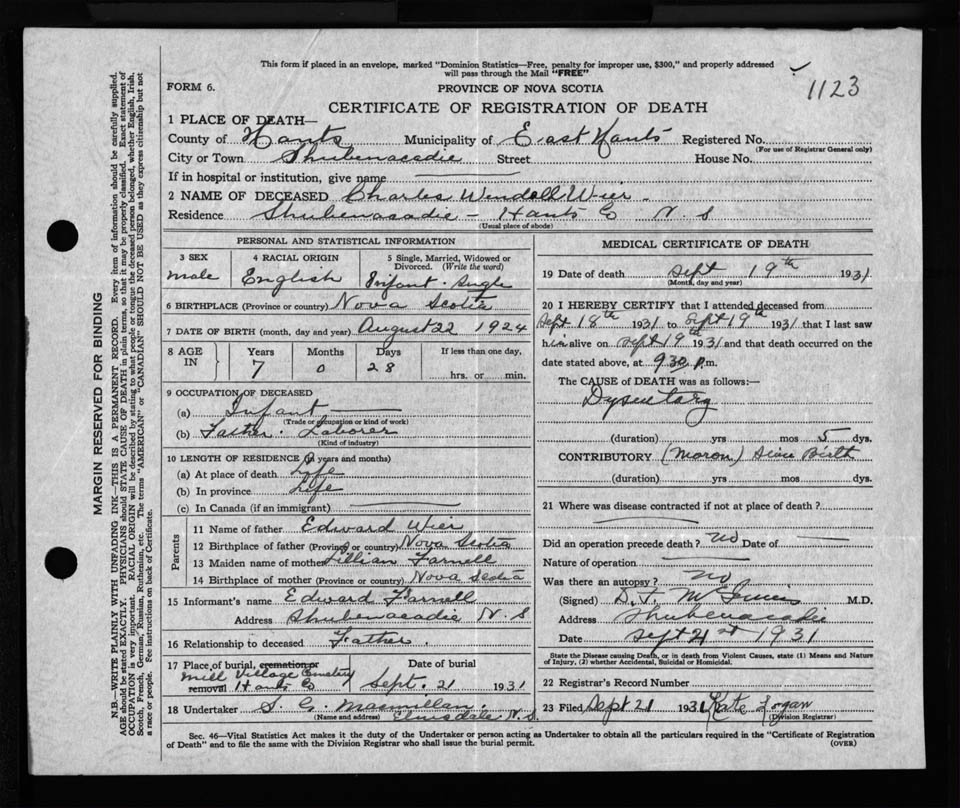 This form if placed in an envelope, marked "Dominion Statistics—Free, penalty for improper use, $300," and properly addressed
will pass through the Mail "FREE"
1123
FORM 6.
PROVINCE OF NOVA SCOTIA
CERTIFICATE OF REGISTRATION OF DEATH
1 PLACE OF DEATH—
County of Hants Municipality of East Hants Registered No.
(For use of Registrar General only)
City or Town Shubenacadie Street House No.
If in hospital or institution, give name
2 NAME OF DECEASED Charles Wendell Wier
Residence Shubenacadie - Hants Co N. S
(Usual place of abode)
PERSONAL AND STATISTICAL INFORMATION
3 SEX 4 RACIAL ORIGIN 5 Single, Married, Widowed or
Divorced. (Write the word)
male English Infant. Single
6 BIRTHPLACE (Province or country) Nova Scotia
7 DATE OF BIRTH (month, day and year) August 22 1924
8 AGE IN Years Months Days If less than one day,
7 0 28 hrs. or min.
9 OCCUPATION OF DECEASED
(a) Infant
(Trade or occupation or kind of work)
(b) Father. Laborer
(Kind of industry)
10 LENGTH OF RESIDENCE (in years and months)
(a) At place of death Life
(b) In province Life
(c) In Canada (if an immigrant)
Parents
11 Name of father Edward Wier
12 Birthplace of father (Province or country) Nova Scotia
13 Maiden name of mother Lillian Farnell
14 Birthplace of mother (Province or country) Nova Scotia
15 Informant's name Edward Farnell
Address Shubenacadie N. S
16 Relationship to deceased Father
17 Place of burial, cremation or Date of burial
Mill Village Cemetery
removal Hants Co Sept. 21 1931
18 Undertaker S. G. Macmillan.
(Name and address) Elmsdale N. S.
MEDICAL CERTIFICATE OF DEATH
19 Date of death Sept 19th 1931
(Month, day and year)
20 I HEREBY CERTIFY that I attended deceased from
Sept 18th 1931 to Sept 19th 1931 that I last saw
him alive on Sept 19th 1931 and that death occurred on the
date stated above, at 9 30 p.m.
The CAUSE of DEATH was as follows:—
Dysentary
(duration) yrs mos 5 dys.
CONTRIBUTORY (Moron) Since Birth
(duration) yrs mos dys.
21 Where was disease contracted if not at place of death?
Did an operation precede death? no Date of
Nature of operation
Was there an autopsy? no
(Signed) D. F. M.D.
Address Shubenacadie
Date Sept 21st 1931
State the Disease causing Death, or in death from Violent Causes, state (1) Means and Nature
of Injury, (2) whether Accidental, Suicidal or Homicidal.
22 Registrar's Record Number
23 Filed Sept 21 1931 Kate Logan
(Division Registrar)
Sec. 46—Vital Statistics Act makes it the duty of the Undertaker or person acting as Undertaker to obtain all the particulars required in the "Certificate of Registration
of Death" and to file the same with the Division Registrar who shall issue the burial permit.
(OVER)
MARGIN RESERVED FOR BINDING
N.B.—WRITE PLAINLY WITH UNFADING INK—THIS IS A PERMANENT RECORD. Every item of information should be carefully supplied.
AGE should be stated EXACTLY. PHYSICIANS should STATE CAUSE OF DEATH in plain terms, so that it may be properly classified. Exact statement of
OCCUPATION is very important. RACIAL ORIGIN will be described by stating to what people or tongue the deceased person belonged, whether English, Irish,
Scotch, French, German, Russian, Ruthenian, etc. The terms "AMERICAN" or "CANADIAN" SHOULD NOT BE USED as they express citizenship but not
a race or people. See instructions on back of Certificate.